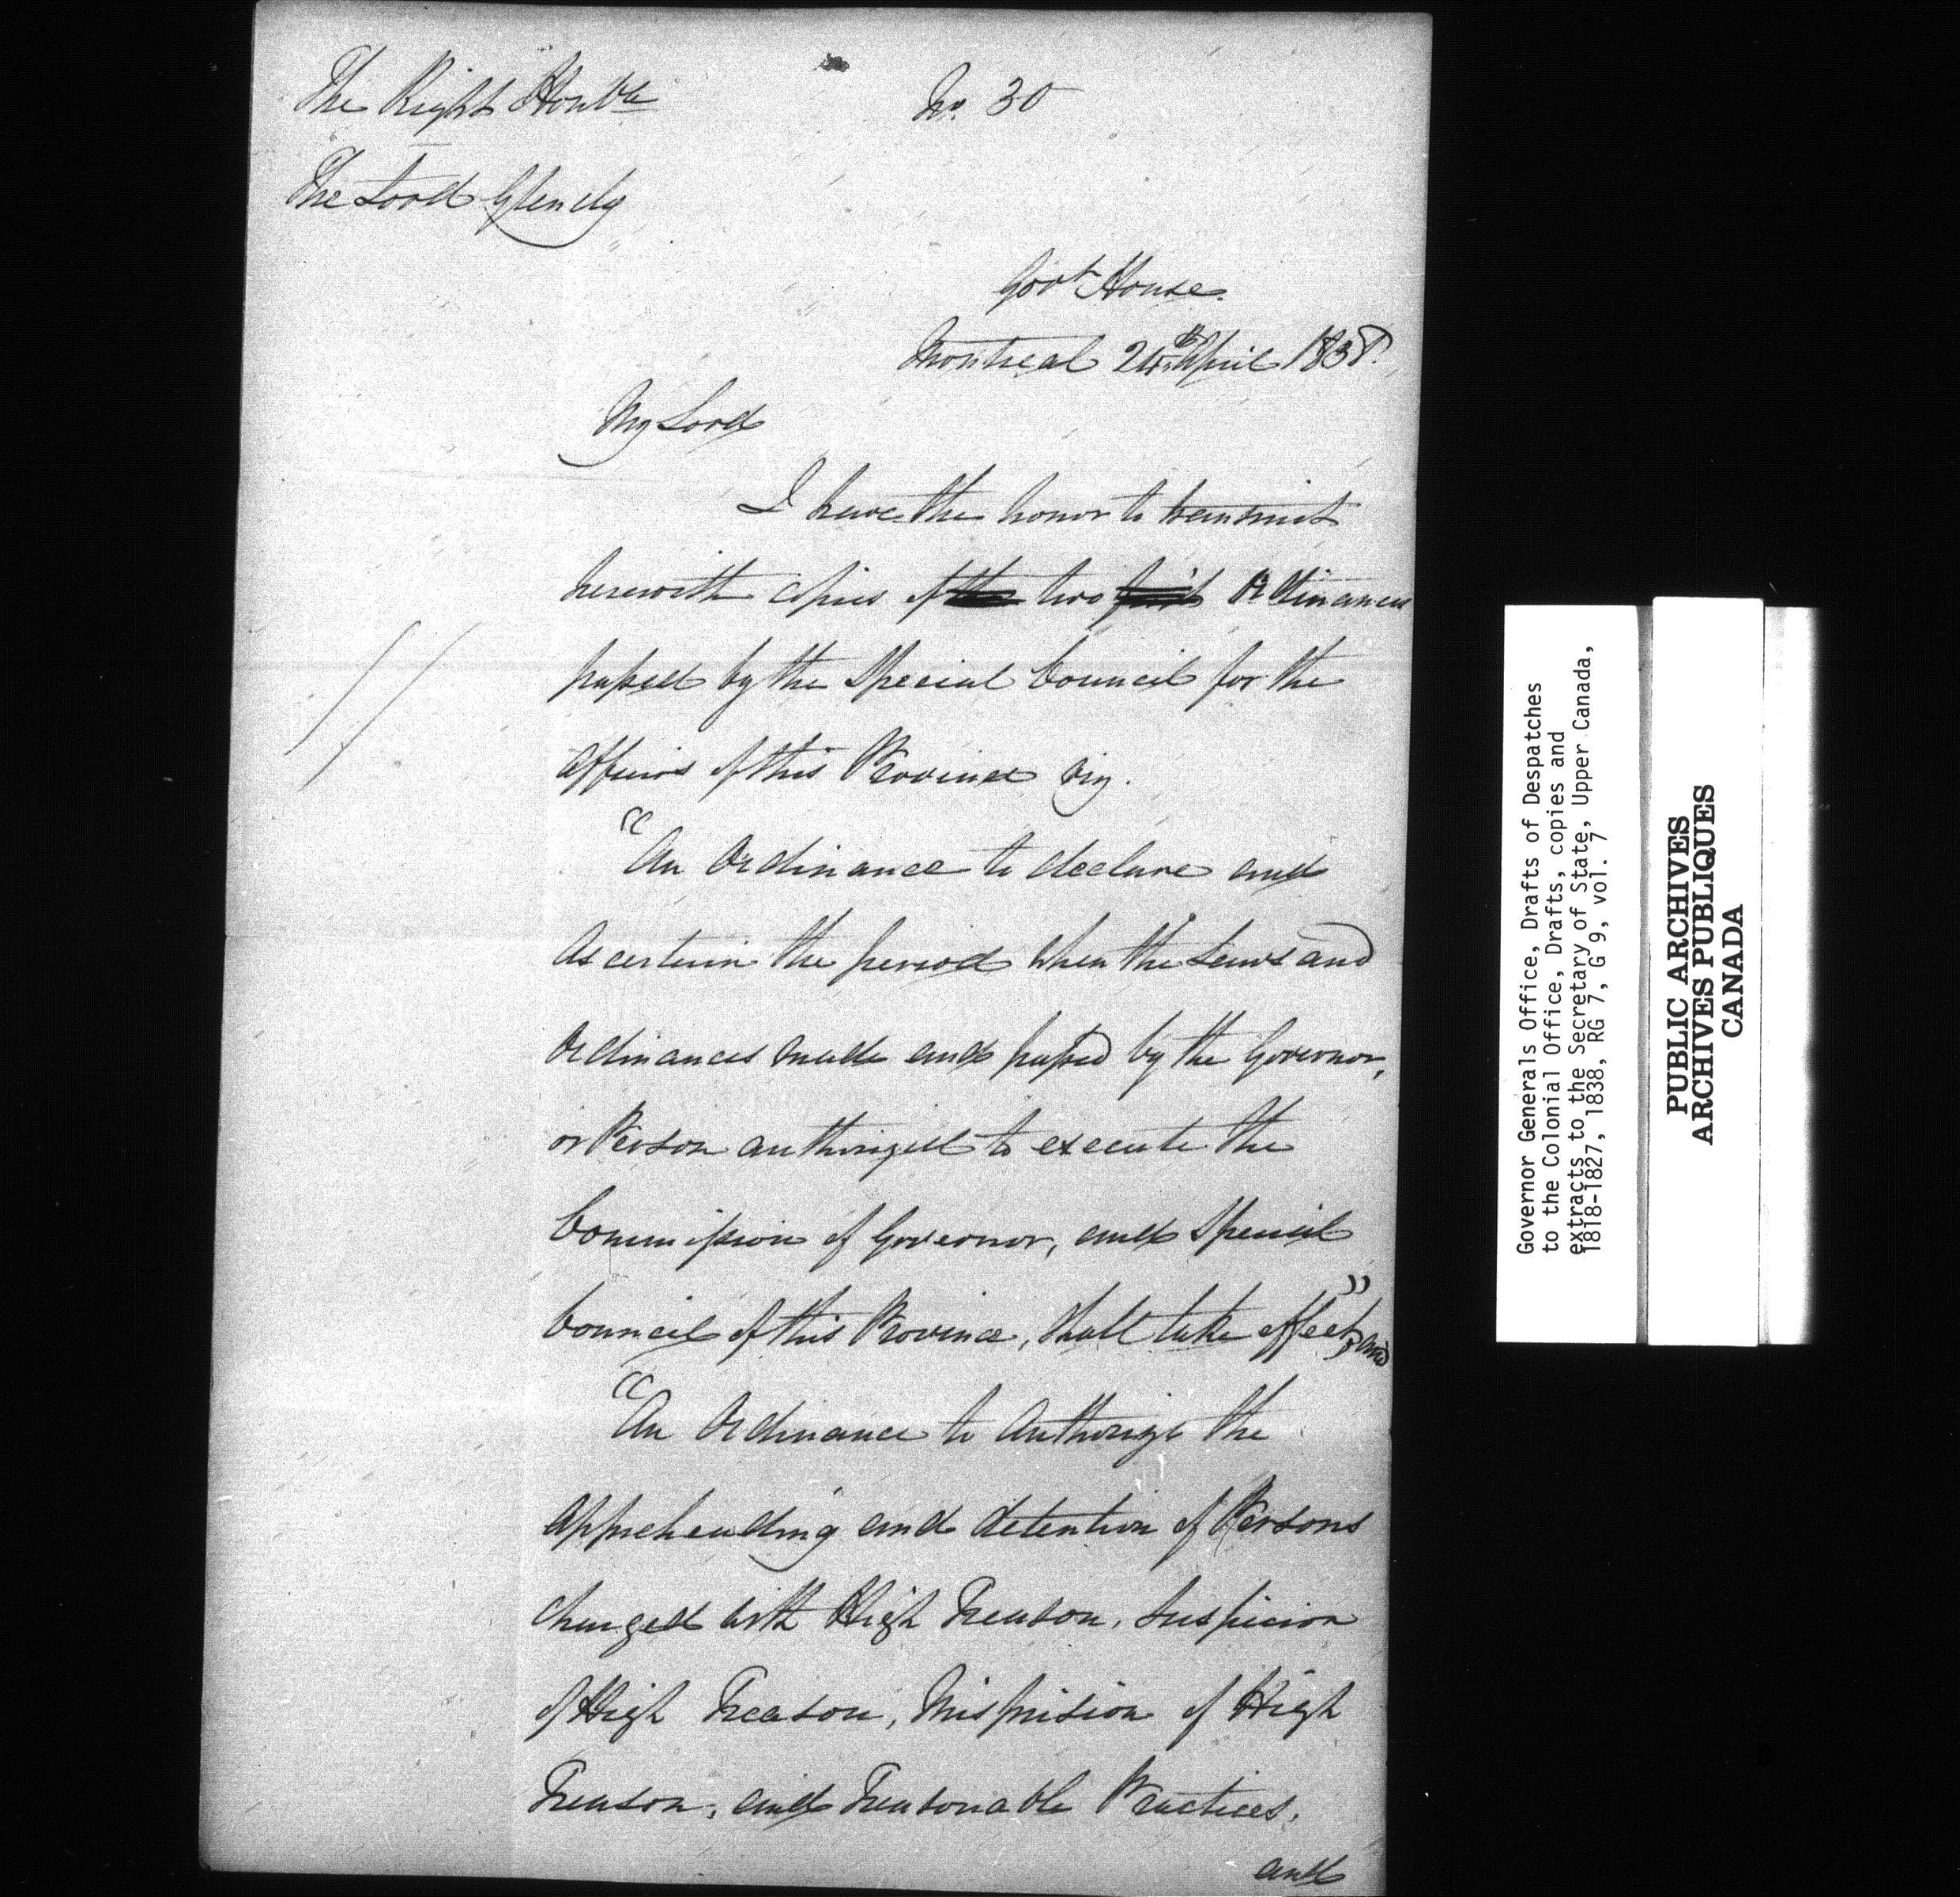 The Right Honble
No. 30
The Lord Glenelg
Govt House.
Montreal 24th April 1838.
My Lord
I have the honor to transmit
herewith copies of the two Ordinances
passed by the Special Council for the
affairs of this Province viz.
"An Ordinance to declare and
ascertain the period when the Laws and
Ordinances made and passed by the Governor,
or Person authorized to execute the
Commission of Governor, and Special
Council of this Province, shall take effect", and
"An Ordinance to Authorize the
apprehending and detention of Persons
charged with High Treason, Suspicion
of High Treason, Misprision of High
Treason, and Treasonable Practices,
and
Governor Generals Office, Drafts of Despatches
to the Colonial Office, Drafts, copies and
extracts to the Secretary of State, Upper Canada,
1818-1827, 1838, RG 7, G 9, vol. 7
PUBLIC ARCHIVES
ARCHIVES PUBLIQUES
CANADA